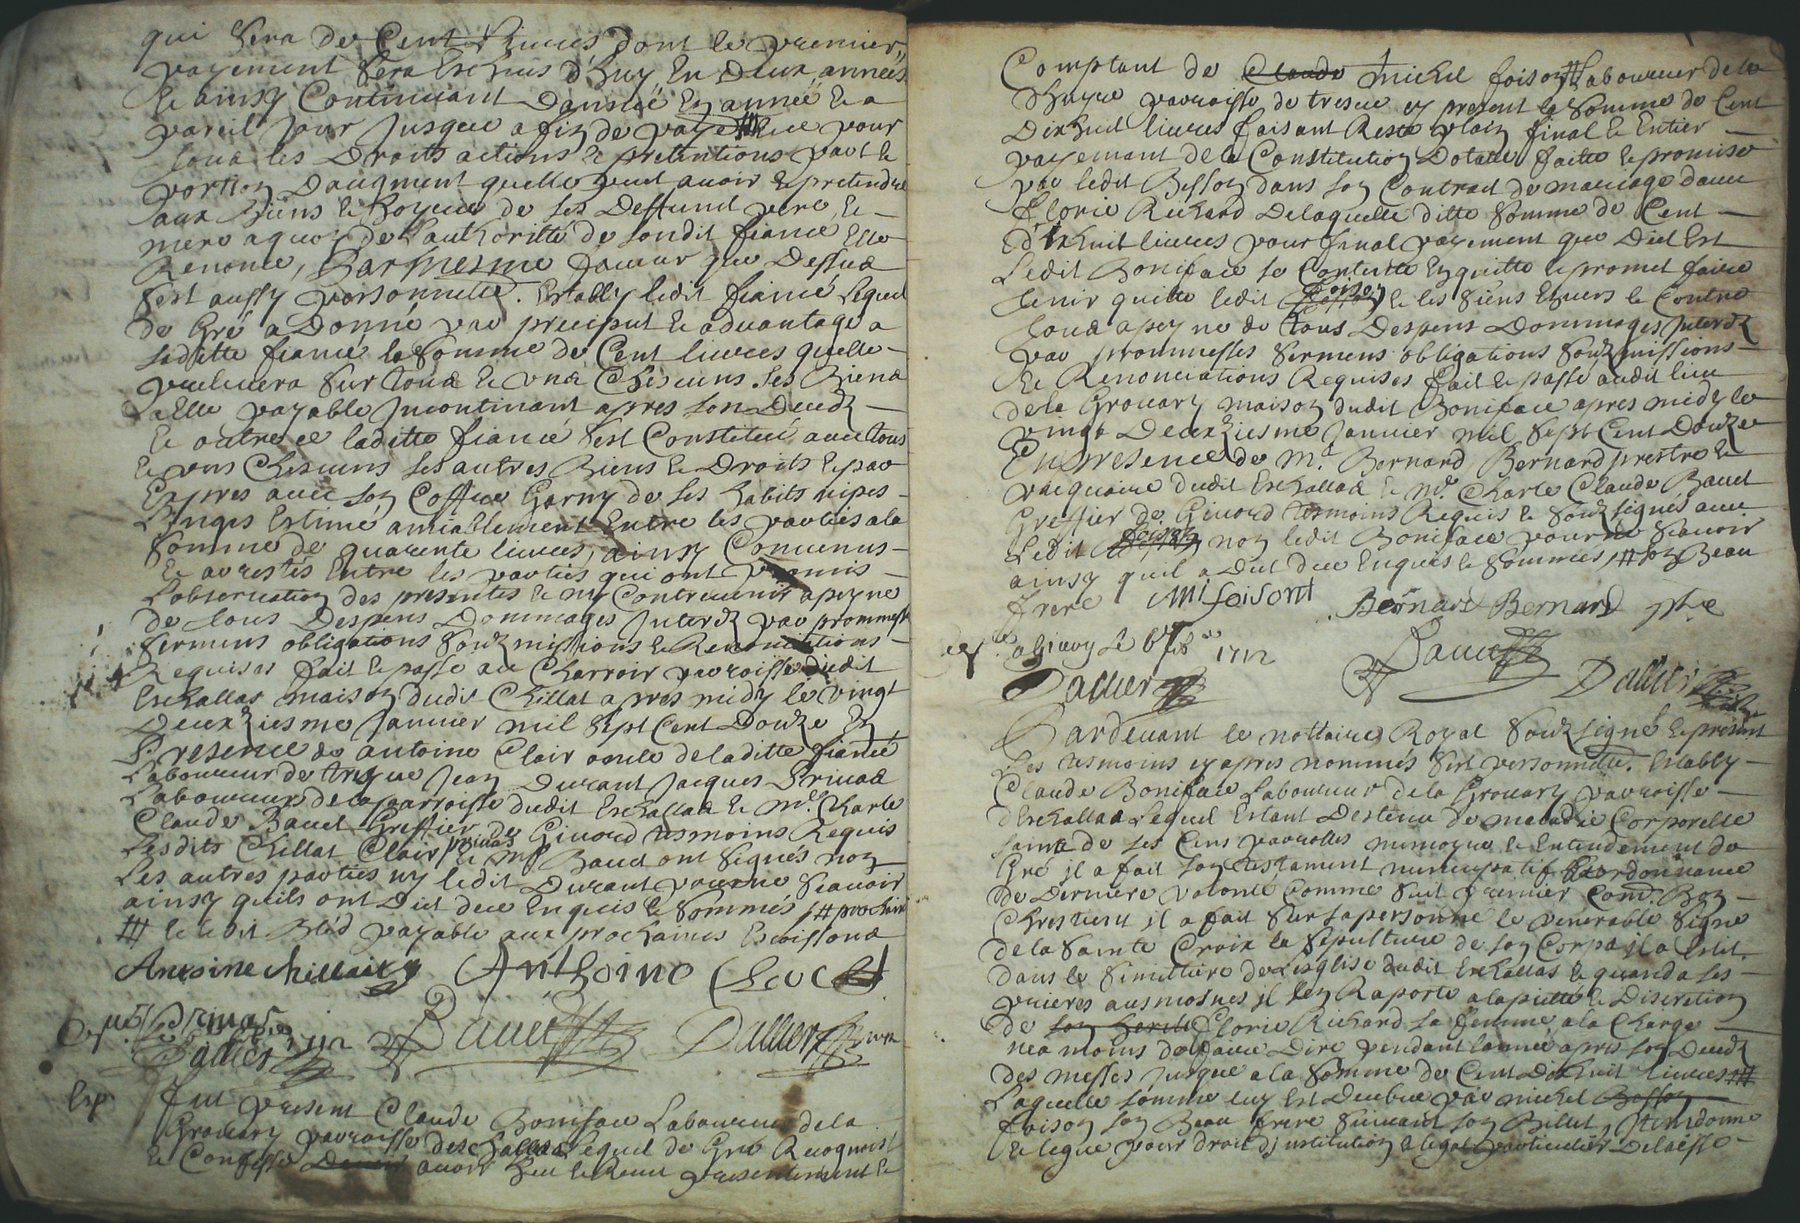 qui sera de Cent Livres dont le premier
payement sera Escheus d'huy En Deux années
Et ainsy Continuant Dannée En année Et a
pareil Jour Jusques a fin de paye # Et ce pour
tous les Droits actions et pretentions part et
portion Daugment quelle peut avoir et pretendre
aux Biens et hoyrie de ses Deffunct pere et
mere aquoy de L'authoritté de sondit fiancé Elle
Renonce, Parmesme Janvier que Dessus
sest aussy personnelle. Estably ledit fiancé Lequel
de Gré a Donné par preciput et advantage a
Laditte fiancé la somme de Cent livres quelle
prelevera sur tous et uns Chescuns ses Biens
a Elle payable Incontinant apres son Decedz
Et outre ce laditte fiancé sest Constitué avec tous
et uns Chescuns ses autres Biens et Droits et par
Expres avec son Coffre Garny de ses habits nipes
Linges Estimé amiablement Entre les parties a la
somme de quarente livres, ainsy Convenus
Et arrestés Entre les parties qui ont promis
L'observation des presentes et ny Contrevenir apeyne
de tous Despens Dommages Interetz par prommesse
sermens obligations soubzmissions et Renonciations
Requises fait et passé au Charroir parroisse dudit
Eschallas maison dudit Chillat apres midy le vingt
Deuxziesme Janvier mil sept Cent Douze En
Presence de antoine Clair oncle de laditte fiancé
Laboureur de treque Jean Durant Jacques Privas
Laboureurs de la parroisse dudit Eschallas et Mr. Charle
Claude Baud Greffier de Givord tesmoins Requis
Lesdits Chillat Clair privas et Mr Baud ont signés non
Les autres parties ny ledit Durant pour ne scavoir
ainsy quils ont Dict dece Enquis et sommés / # prochain
# et ledit Bled payable aux prochaines Escoissons
Antoine chillait Anthoine Cler
Privas
Exp. 1712 Baud Dallier
Dallier
Exp Fut present Claude Boniface Laboureur de la
Grouary parroisse deschallas Lequel de Gré Recognoist
et Confesse Devoir avoir heu et Receu presentement et
Comptant de Claude michel foison # Laboureur de la
parroisse de tresve ey present la somme de Cent
Dixhuit livres faisant Reste plain final et Entier
payement de la Constitution Dotalle faitte et promise
par ledit Besson dans son Contract de mariage avec
Florie Richard De laquelle ditte somme de Cent
dixhuit livres pour final payement que Dict Est
Ledit Boniface se Contente En quitte et promet faire
tenir quitte ledit foison et les siens Envers et Contre
tous apeyne de tous Despens Dommages Interetz
par prommesses sermens obligations soubzmissions
et Renonciations Requises fait et passé audit lieu
de la Grouary maison dudit Boniface apres midy le
vingt Deuxziesme Janvier mil sept Cent Douze
En presence de Mr. Bernard Bernard prestre et
vicquaire dudit Eschallas et Mr. Charle Claude Baud
Greffier de Givord tesmoins Requis et soubzsignés avec
Ledit foison non ledit Boniface pour ne scavoir
ainsy quil a Dict dece Enquis et sommés / # son Beau
frere mi foisont Bernard Bernard ptre
Exp. a givors le 6 1712 Baud
Dallier Dallier
Pardevant le nottaire Royal soubzsigné et present
Les tesmoins cyapres nommés sest personnelle. Estably
Claude Boniface Laboureur de la Grouary parroisse
dEschallas Lequel Estant Destenu de maladie Corporelle
saint de ses Cens parolles memoyre et Entendement de
Gré il a fait son testament nuncupatif et ordonnance
de Derniere volonté Comme suit premier Comme. Bon
Chrestient il a fait sur sa personne le venerable signe
de la sainte Croix la sepulture de son Corps il a Eslit.
dans le simittiere de L'esglise dudit Eschallas et quand a ses
prieres ausmosnes il sen Raporte a la piette et Discretion
de Florie Richard sa femme a la Charge
neanmoins de faire Dire pendant lannee apres son Decedz
des messes Jusque a la somme de Cent Dixhuit livres #
Laquelle somme luy Est Deubue par michel Besson
foison son Beau frere suivant son Billet, Item donne
et legue pour droit d'institution et legat particulier Delaisse